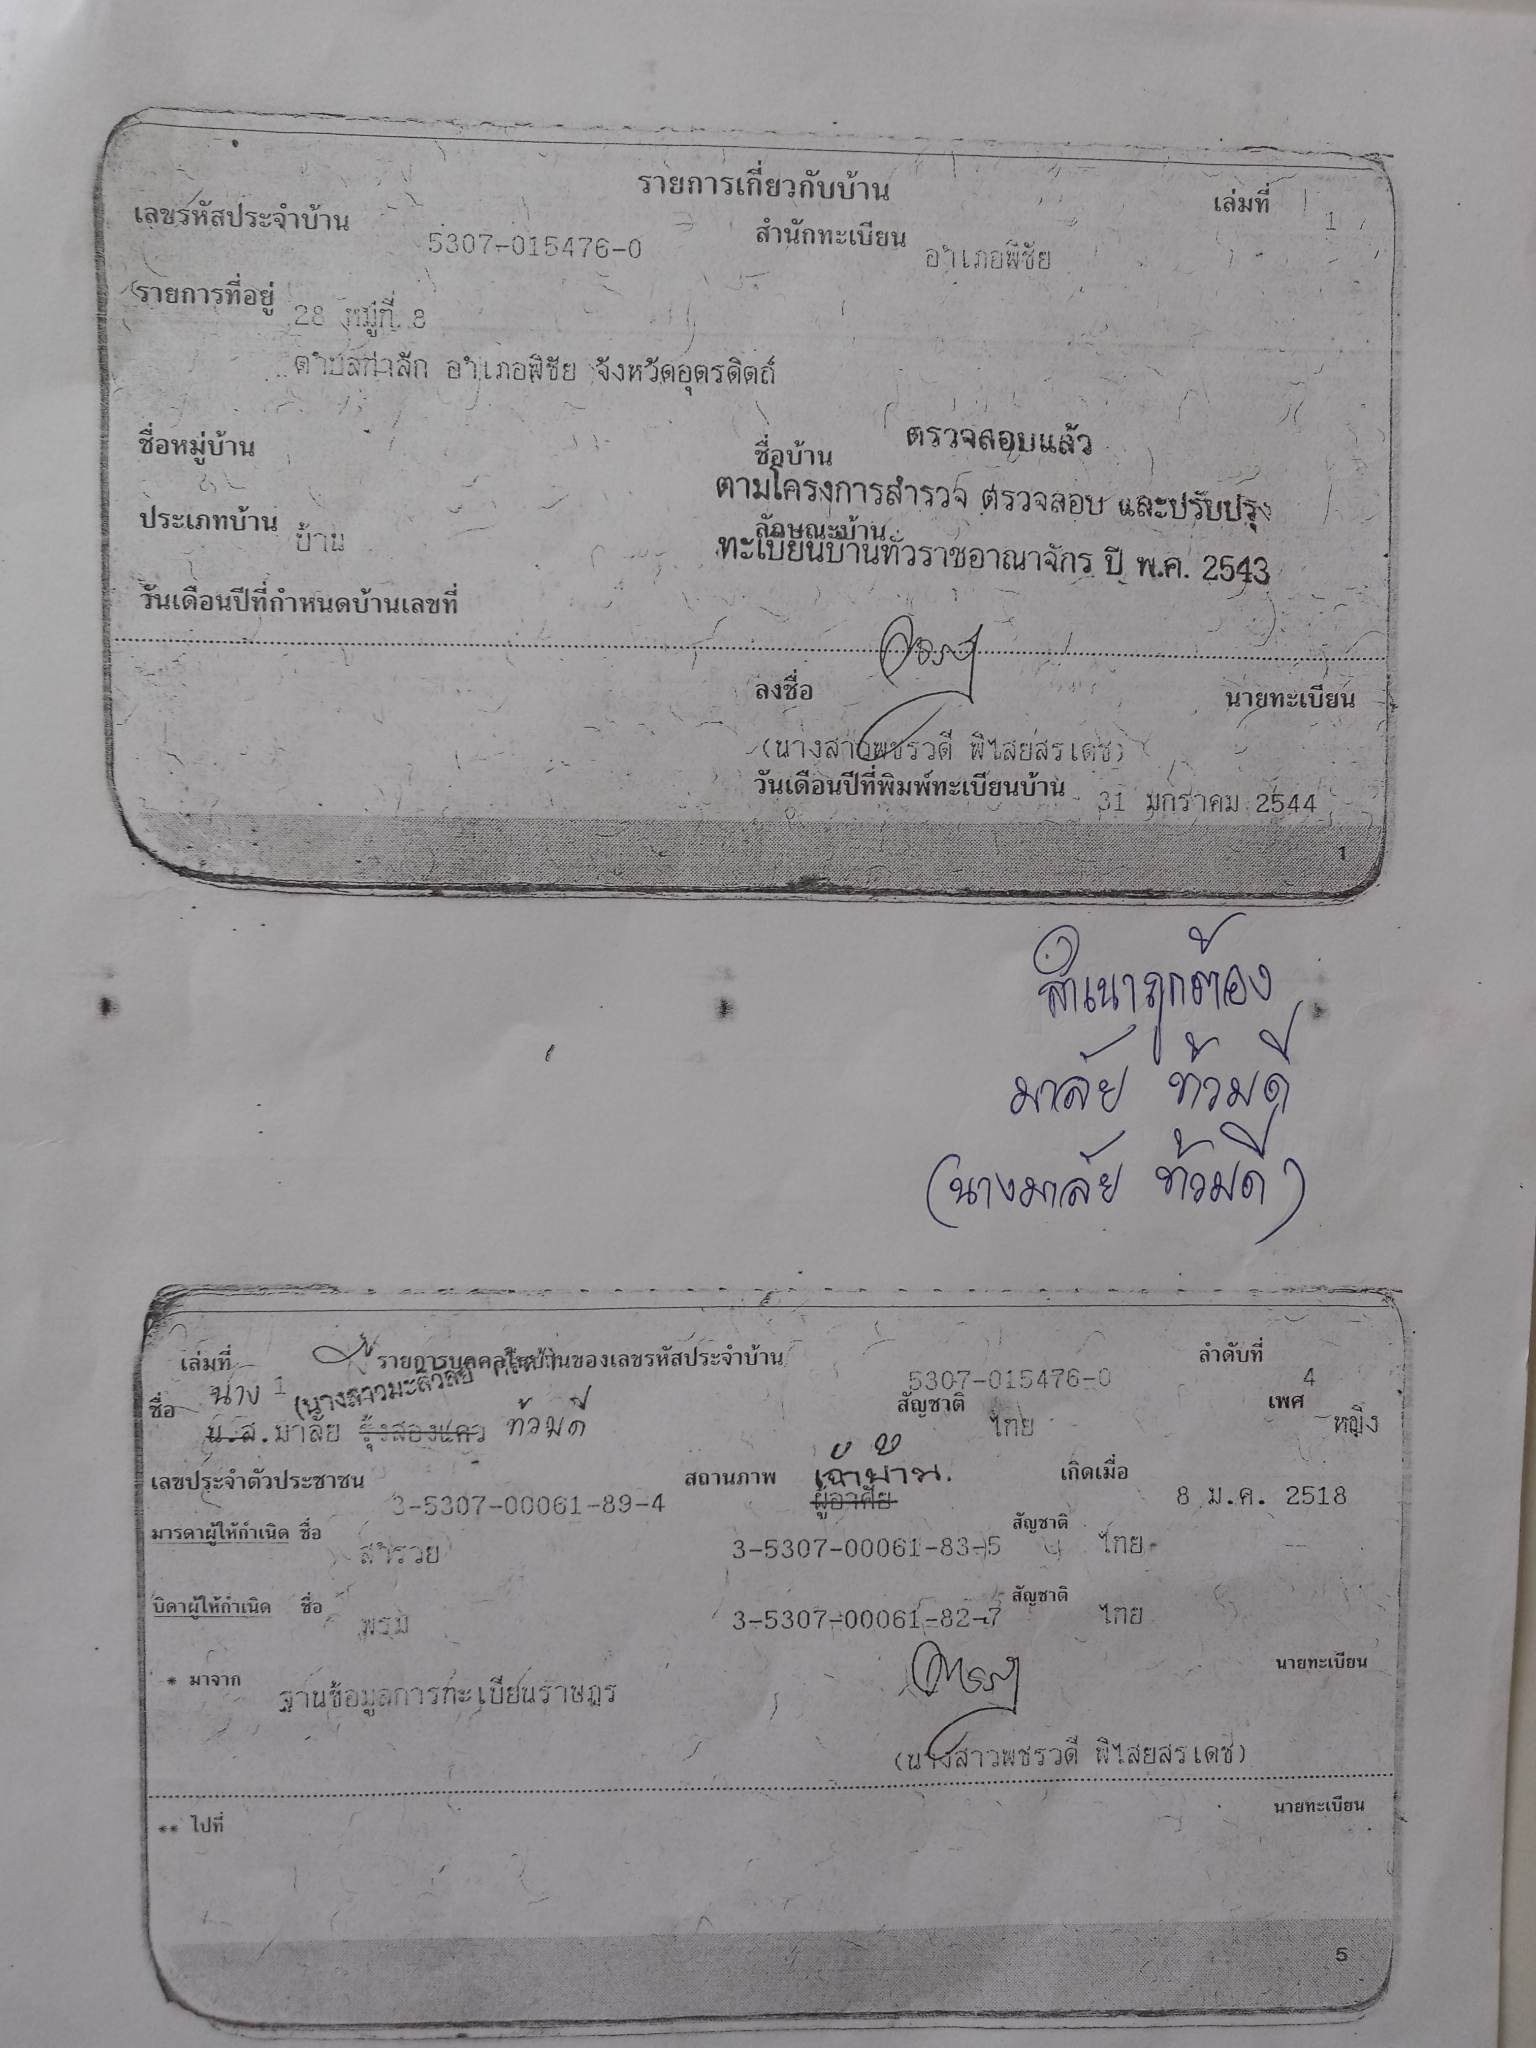 รายการเกี่ยวกับบ้าน
เล่มที่ 1
เลขรหัสประจำบ้าน 5307-015476-0 สำนักทะเบียน อำเภอพิชัย
รายการที่อยู่ 28 หมู่ที่ 8
ตำบลท่าสัก อำเภอพิชัย จังหวัดอุตรดิตถ์
ชื่อหมู่บ้าน ชื่อบ้าน
ตรวจสอบแล้ว
ตามโครงการสำรวจ ตรวจสอบ และปรับปรุง
ประเภทบ้าน บ้าน ลักษณะบ้าน
ทะเบียนบ้านทั่วราชอาณาจักร ปี พ.ศ. 2543
วันเดือนปีที่กำหนดบ้านเลขที่
ลงชื่อ นายทะเบียน
(นางสาวพชรวดี พิไสยสรเดช)
วันเดือนปีที่พิมพ์ทะเบียนบ้าน 31 มกราคม 2544
1
สำเนาถูกต้อง
มาลัย ท้วมดี
(นางมาลัย ท้วมดี)
เล่มที่ 1 รายการบุคคลในบ้านของเลขรหัสประจำบ้าน 5307-015476-0 ลำดับที่ 4
(นางสาวมะลิวัลย์
ชื่อ นาง น.ส.มาลัย รุ้งสองแคว ท้วมดี สัญชาติ ไทย เพศ หญิง
เลขประจำตัวประชาชน 3-5307-00061-89-4 สถานภาพ เจ้าบ้าน. ผู้อาศัย เกิดเมื่อ 8 ม.ค. 2518
มารดาผู้ให้กำเนิด ชื่อ สำรวย 3-5307-00061-83-5 สัญชาติ ไทย
บิดาผู้ให้กำเนิด ชื่อ พรม 3-5307-00061-82-7 สัญชาติ ไทย
* มาจาก ฐานข้อมูลการทะเบียนราษฎร นายทะเบียน
(นางสาวพชรวดี พิไสยสรเดช)
** ไปที่ นายทะเบียน
5